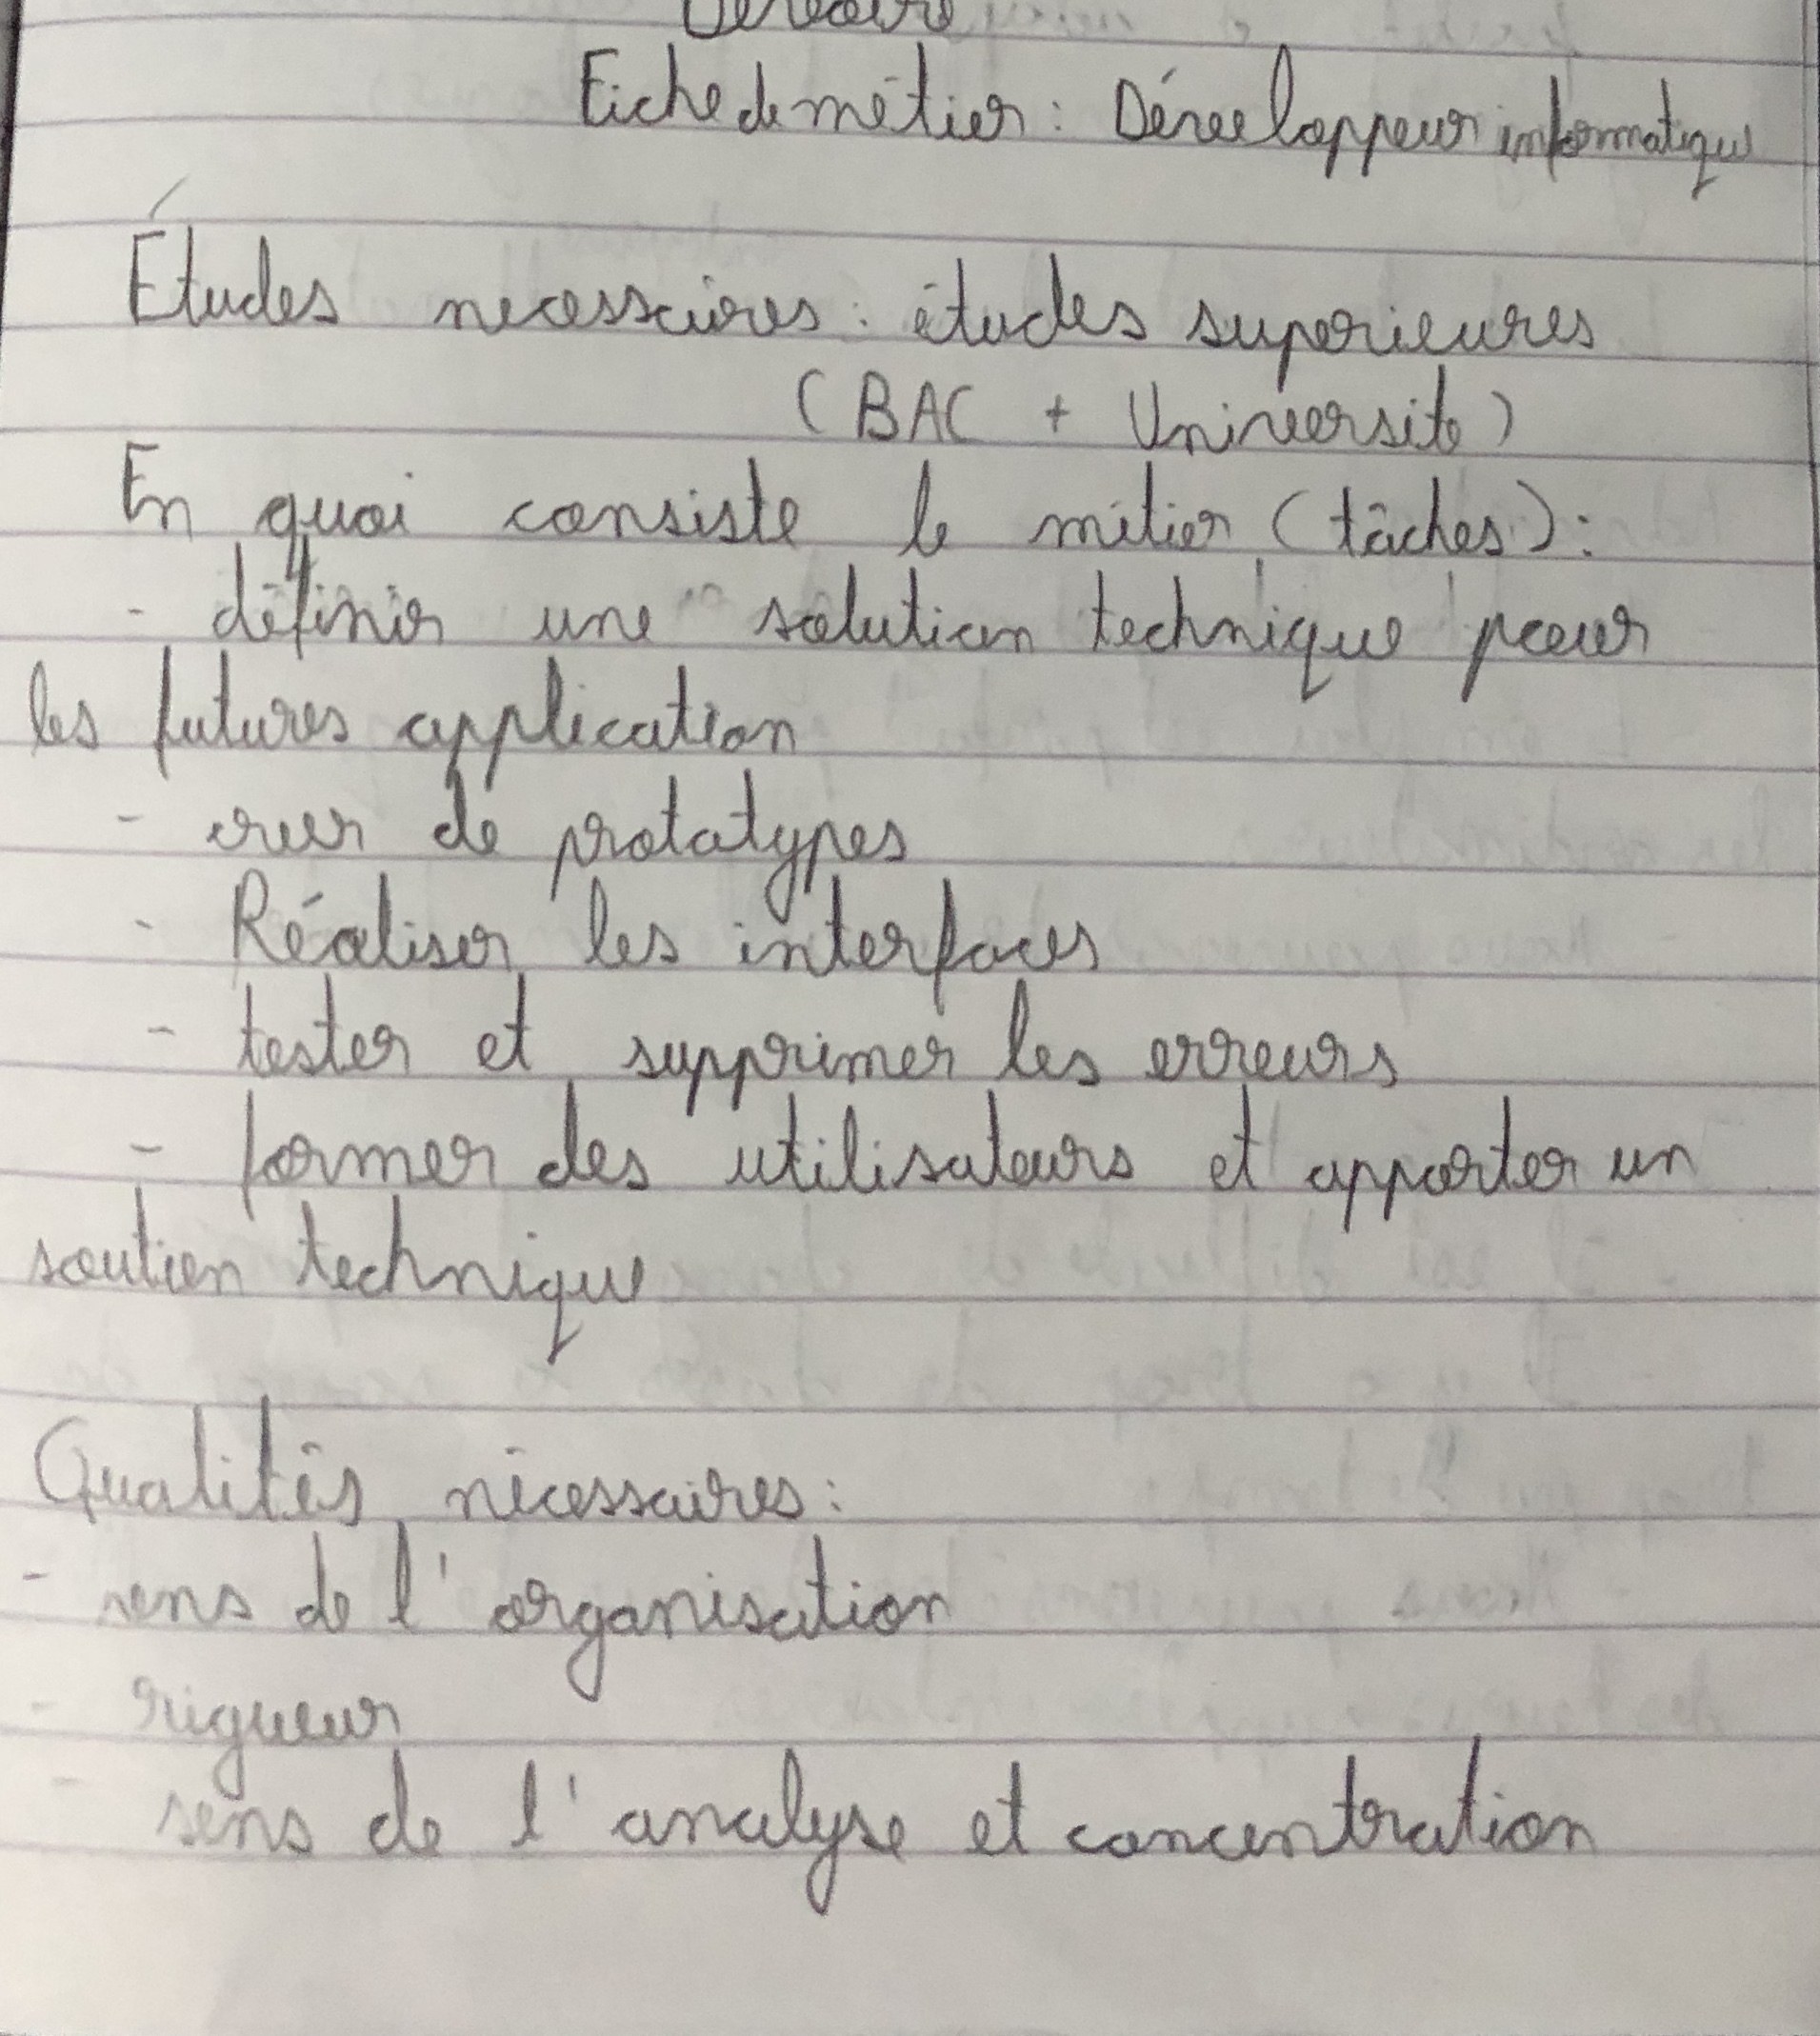 Fiche de métier : Développeur informatique
Études necessaires : études superieures
(BAC + Université)
En quoi consiste le métier (tâches) :
- définir une solution technique pour
les futures application
- creer de prototypes
- Réaliser les interfaces
- tester et supprimer les erreurs
- former des utilisateurs et apporter un
soutien technique
Qualités nécessaires :
- sens de l'organisation
- rigueur
- sens de l'analyse et concentration